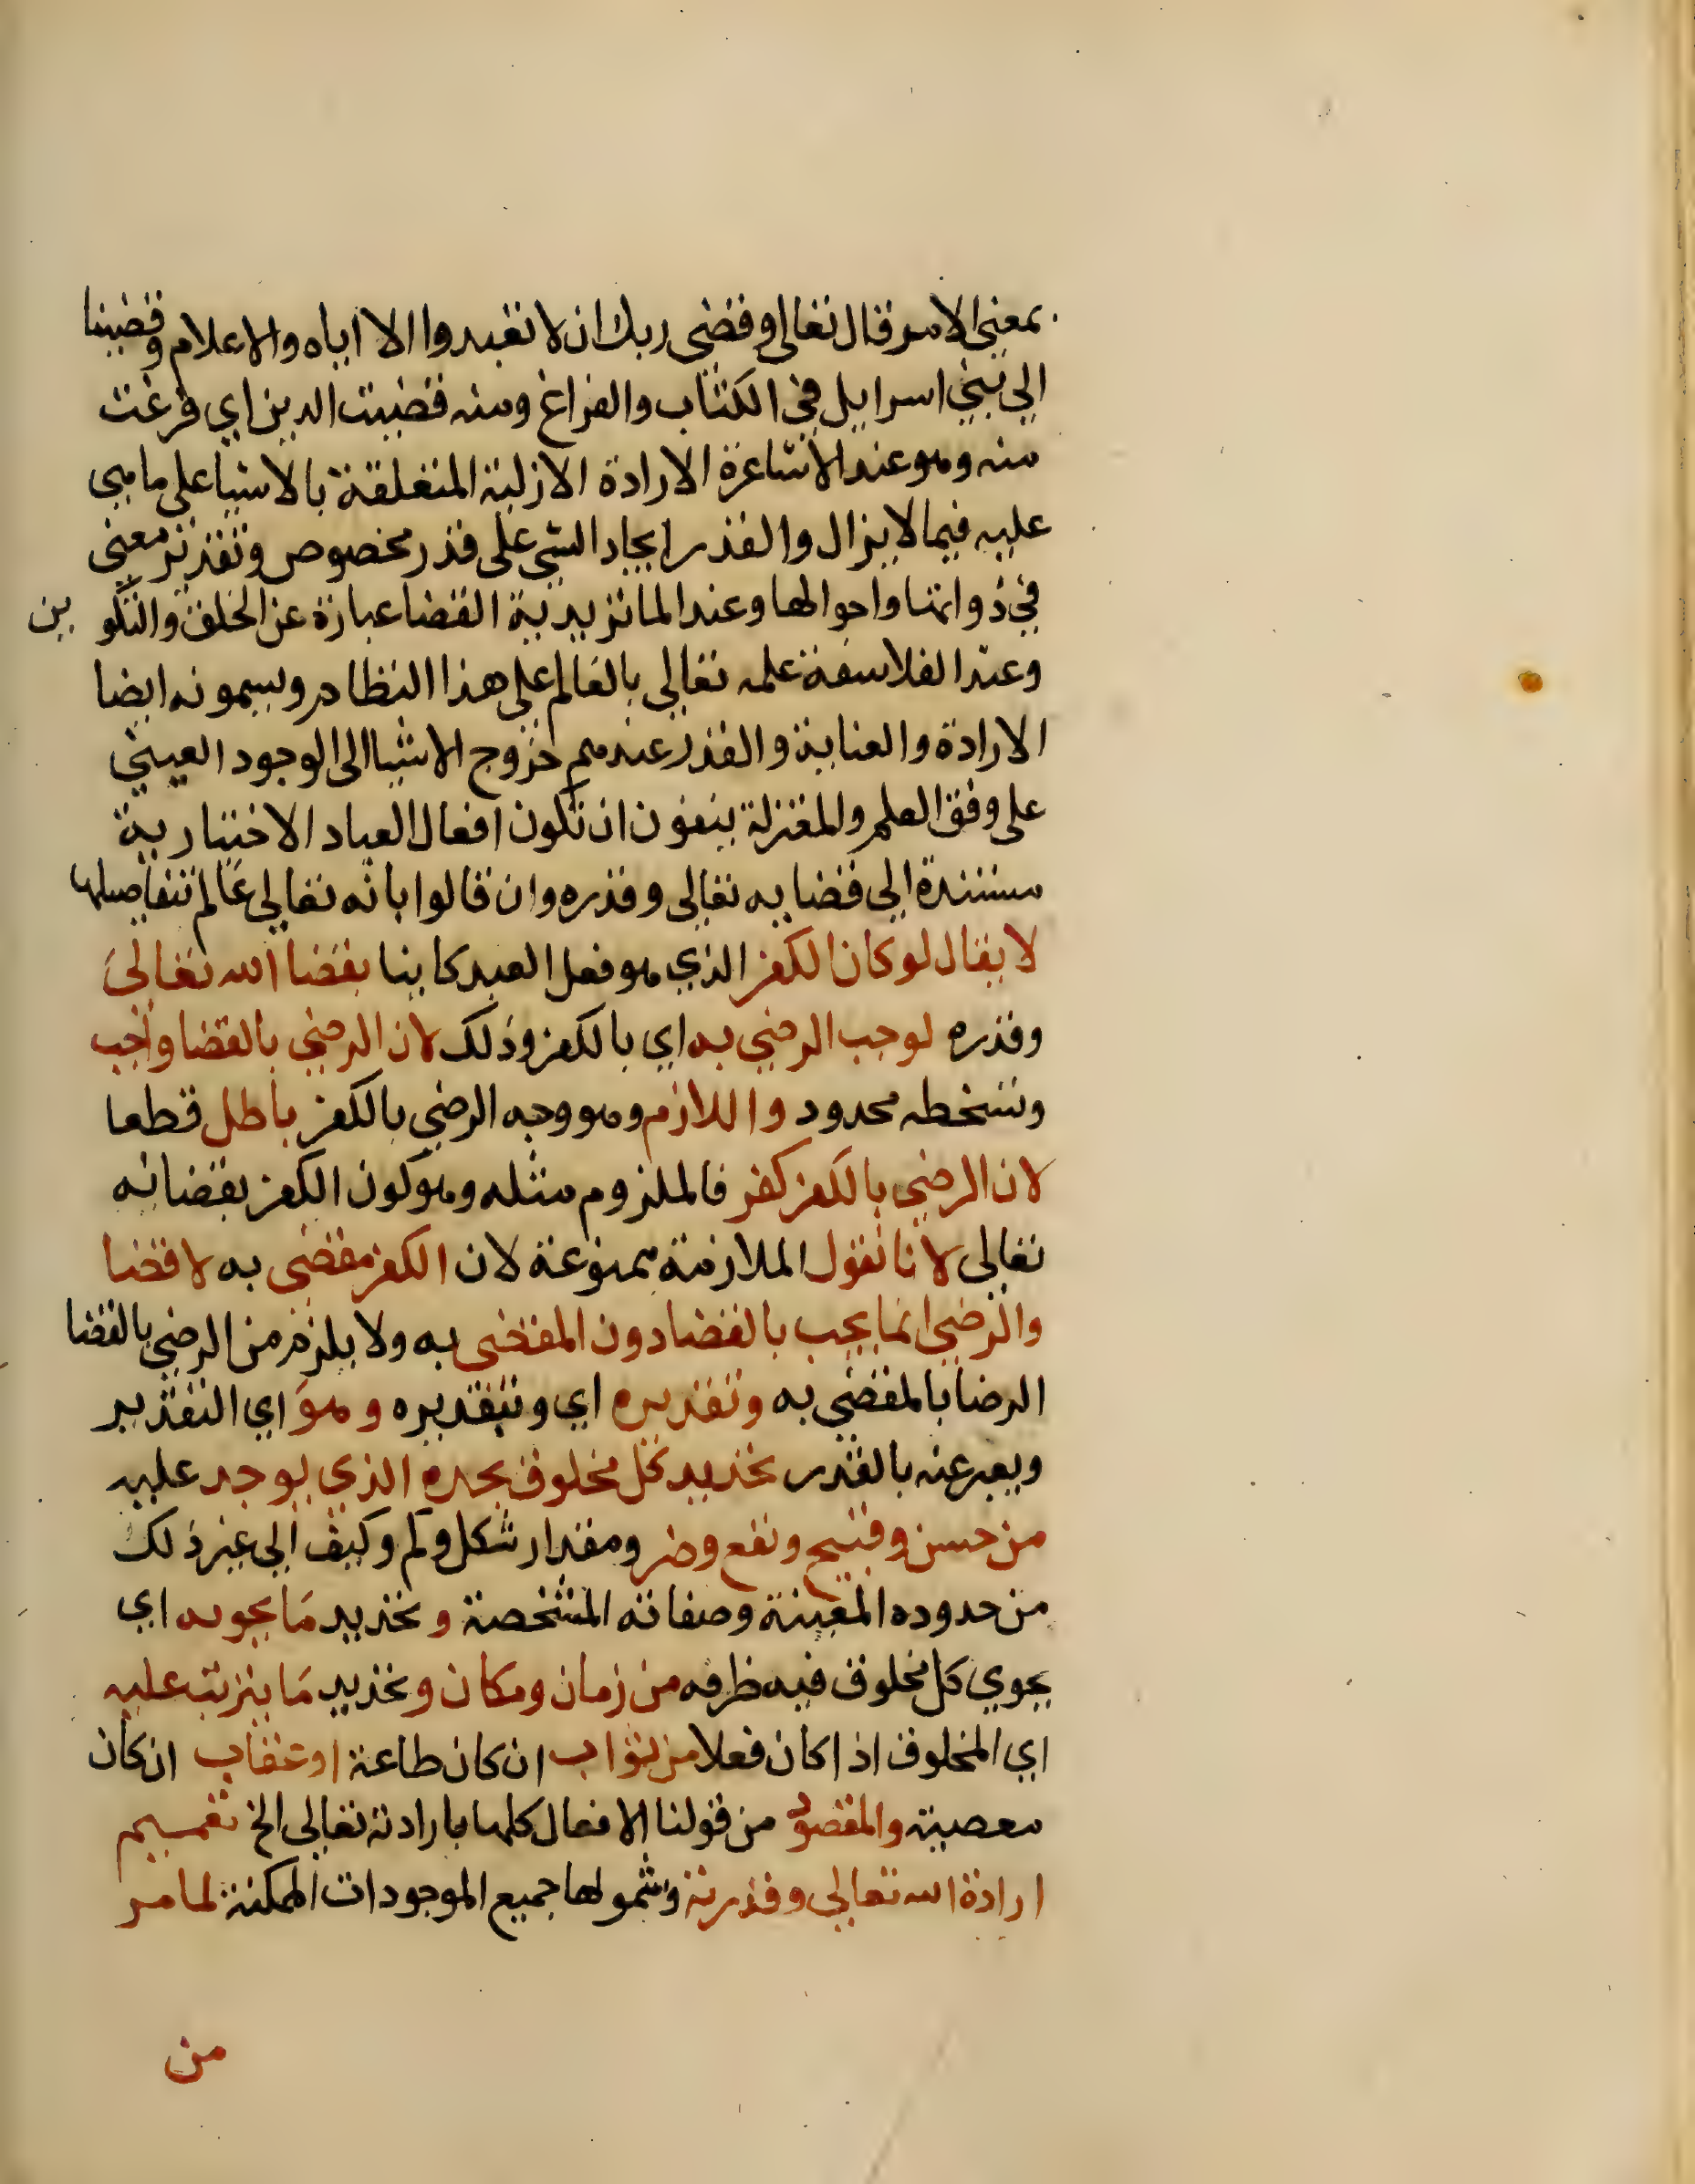 بمعني الامر قال تعالى وقضى ربك ان لا تعبدوا الا اياه والاعلام وقضينا
الي بني اسرايل في الكتاب والفراغ ومنه قضيت الدين اي فرغت
منه وهو عند الاشاعرة الارادة الازلية المتعلقة بالاشيا على ما هي
عليه فيما لا يزال والقدر ايجاد الشي على قدر مخصوص وتقدير معين
في ذواتها واحوالها وعند الماتريدية القضا عبارة عن الخلق والتكوين
وعند الفلاسفة علمه تعالي بالعالم على هذا النظام ويسمونه ايضا
الارادة والعناية والقدر عندهم خروج الاشيا الى الوجود العيني
على وفق العلم والمعتزلة ينفون ان تكون افعال العباد الاختيارية
مستندة الي قضايه تعالى وقدره وان قالوا بانه تعالي عالم بتفاصيلها
لا يقال لو كان الكفر الذي هو فعل العبد كاينا بقضا الله تعالى
وقدره لوجب الرضي به اي بالكفر وذلك لان الرضي بالقضا واجب
وتسخطه محدود واللازم وهو وجه الرضي بالكفر باطل قطعا
لان الرضي بالكفر كفر فالملزوم مثله وهو كون الكفر بقضائه
تعالى لانا نقول الملازمة ممنوعة لان الكفر مقضي به لا قضا
والرضي انما يجب بالقضا دون المقضي به ولا يلزم من الرضي بالقضا
الرضا بالمقضي به وتقديره اي وبتقديره وهو اي التقدير
ويعبر عنه بالقدر تحديد كل مخلوق بحده الذي يوجد عليه
من حسن وقبيح ونفع وضر ومقدار شكل وكم وكيف الي غير ذلك
من حدوده المعينة وصفاته المشخصة وتحديد ما يحويه اي
يحوي كل مخلوق فيه ظرفه من زمان ومكان وتحديد ما يترتب عليه
اي المخلوق اذا كان فعلا من ثواب ان كان طاعة او عقاب ان كان
معصية والمقصود من قولنا الافعال كلها بارادته تعالى الخ تعميم
ارادة الله تعالي وقدرته وشمولها جميع الموجودات الممكنة لما مر
من